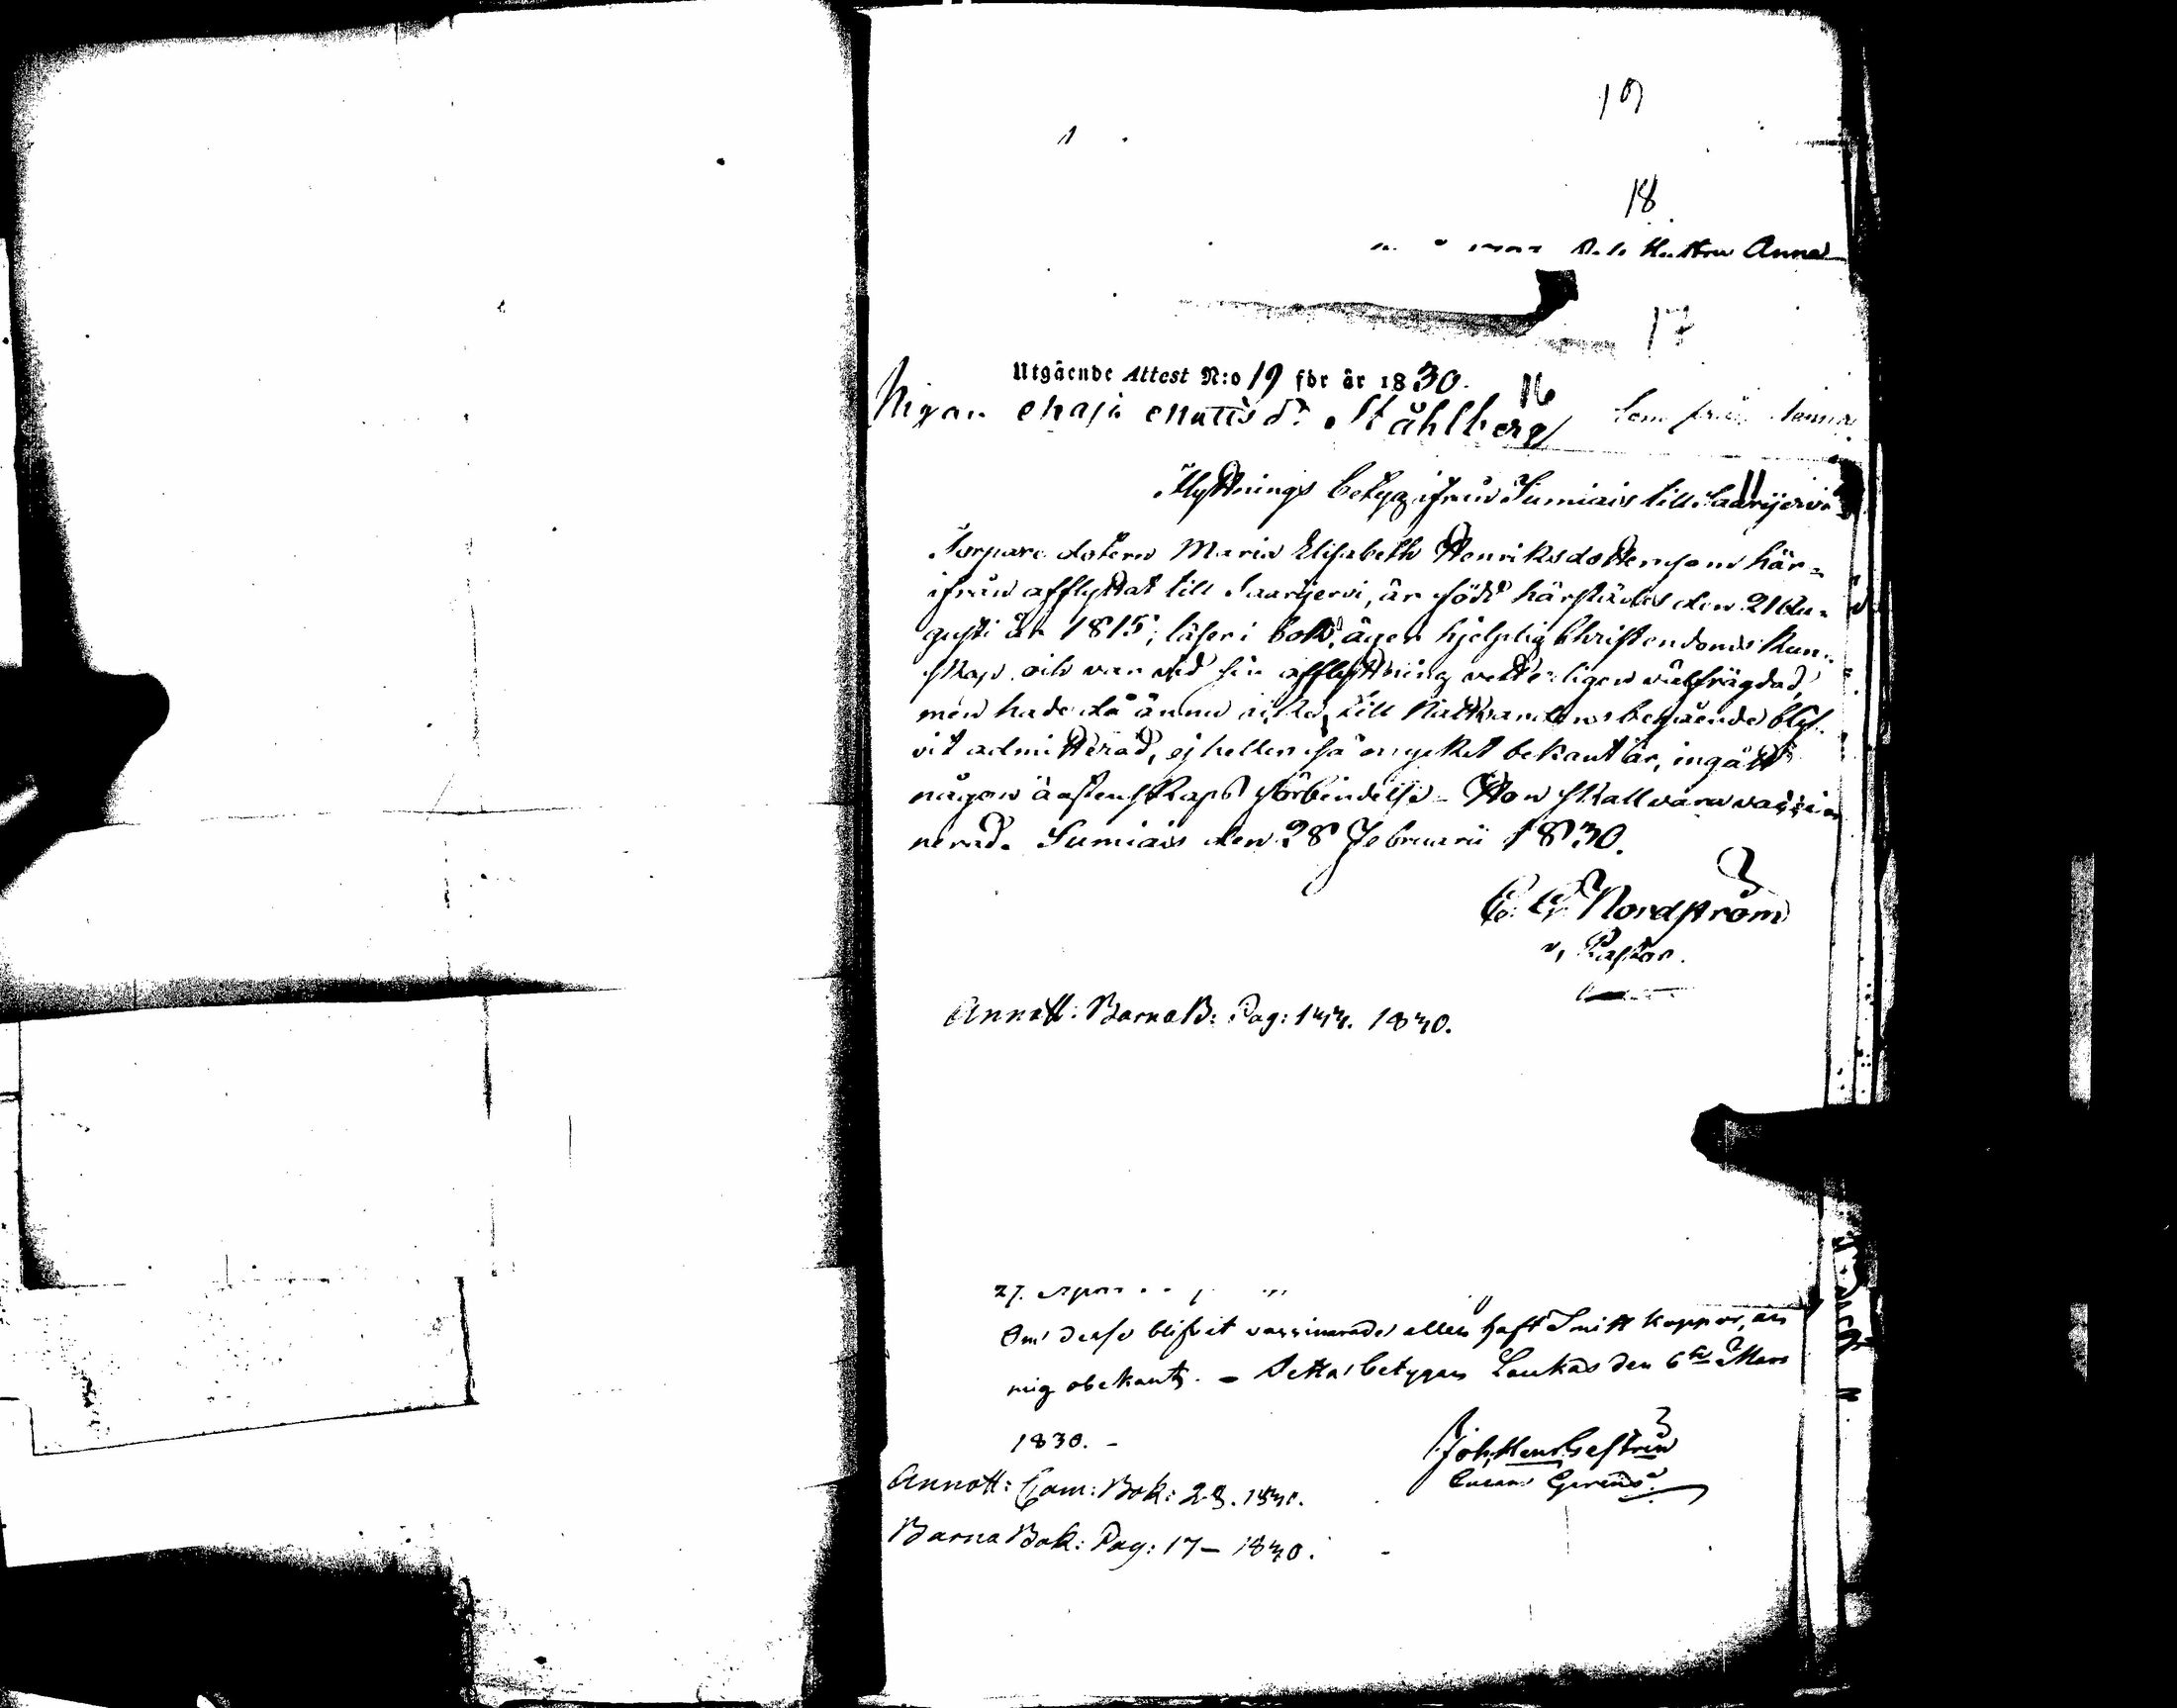 19
18
Hustru Anna
17
Utgående Attest N:o 19 för år 1830.
16
Pigan Maja Mattsdr Ståhlberg som från
Flyttnings betyg ifrån Sumiais till Saarijervi
Torpare dotern Maria Elisabeth Henriksdotter som här=
ifrån afflyttat till Saarijervi, är född härstädes den 21 Au=
gusti år 1815; läser i bok, äger hjelplig Christendoms kun=
skap och var vid sin afflyttning vetterligen välfrägdad,
men hade då ännu icke till Nattvardens begående blif=
vit admitterad, ej heller så mycket bekant är, ingått
någon äcktenskaps förbindelse – Hon skall vara vacci=
nerad. Sumiais den 28 Februarii 1830.
Nordström
v, Pastor.
Annott: BarnaB: Pag: 144. 1830.
27.
Om desse blifvit vaccinerade eller haft Smitt koppor, är
mig obekant. – Detta betygar Laukas den 6te Mars
1830. –
Joh. Henr. Gestrin
Curam Gerens
Annott: Com: Bok: 23. 1830.
Barna Bok: Pag: 17 – 1830.